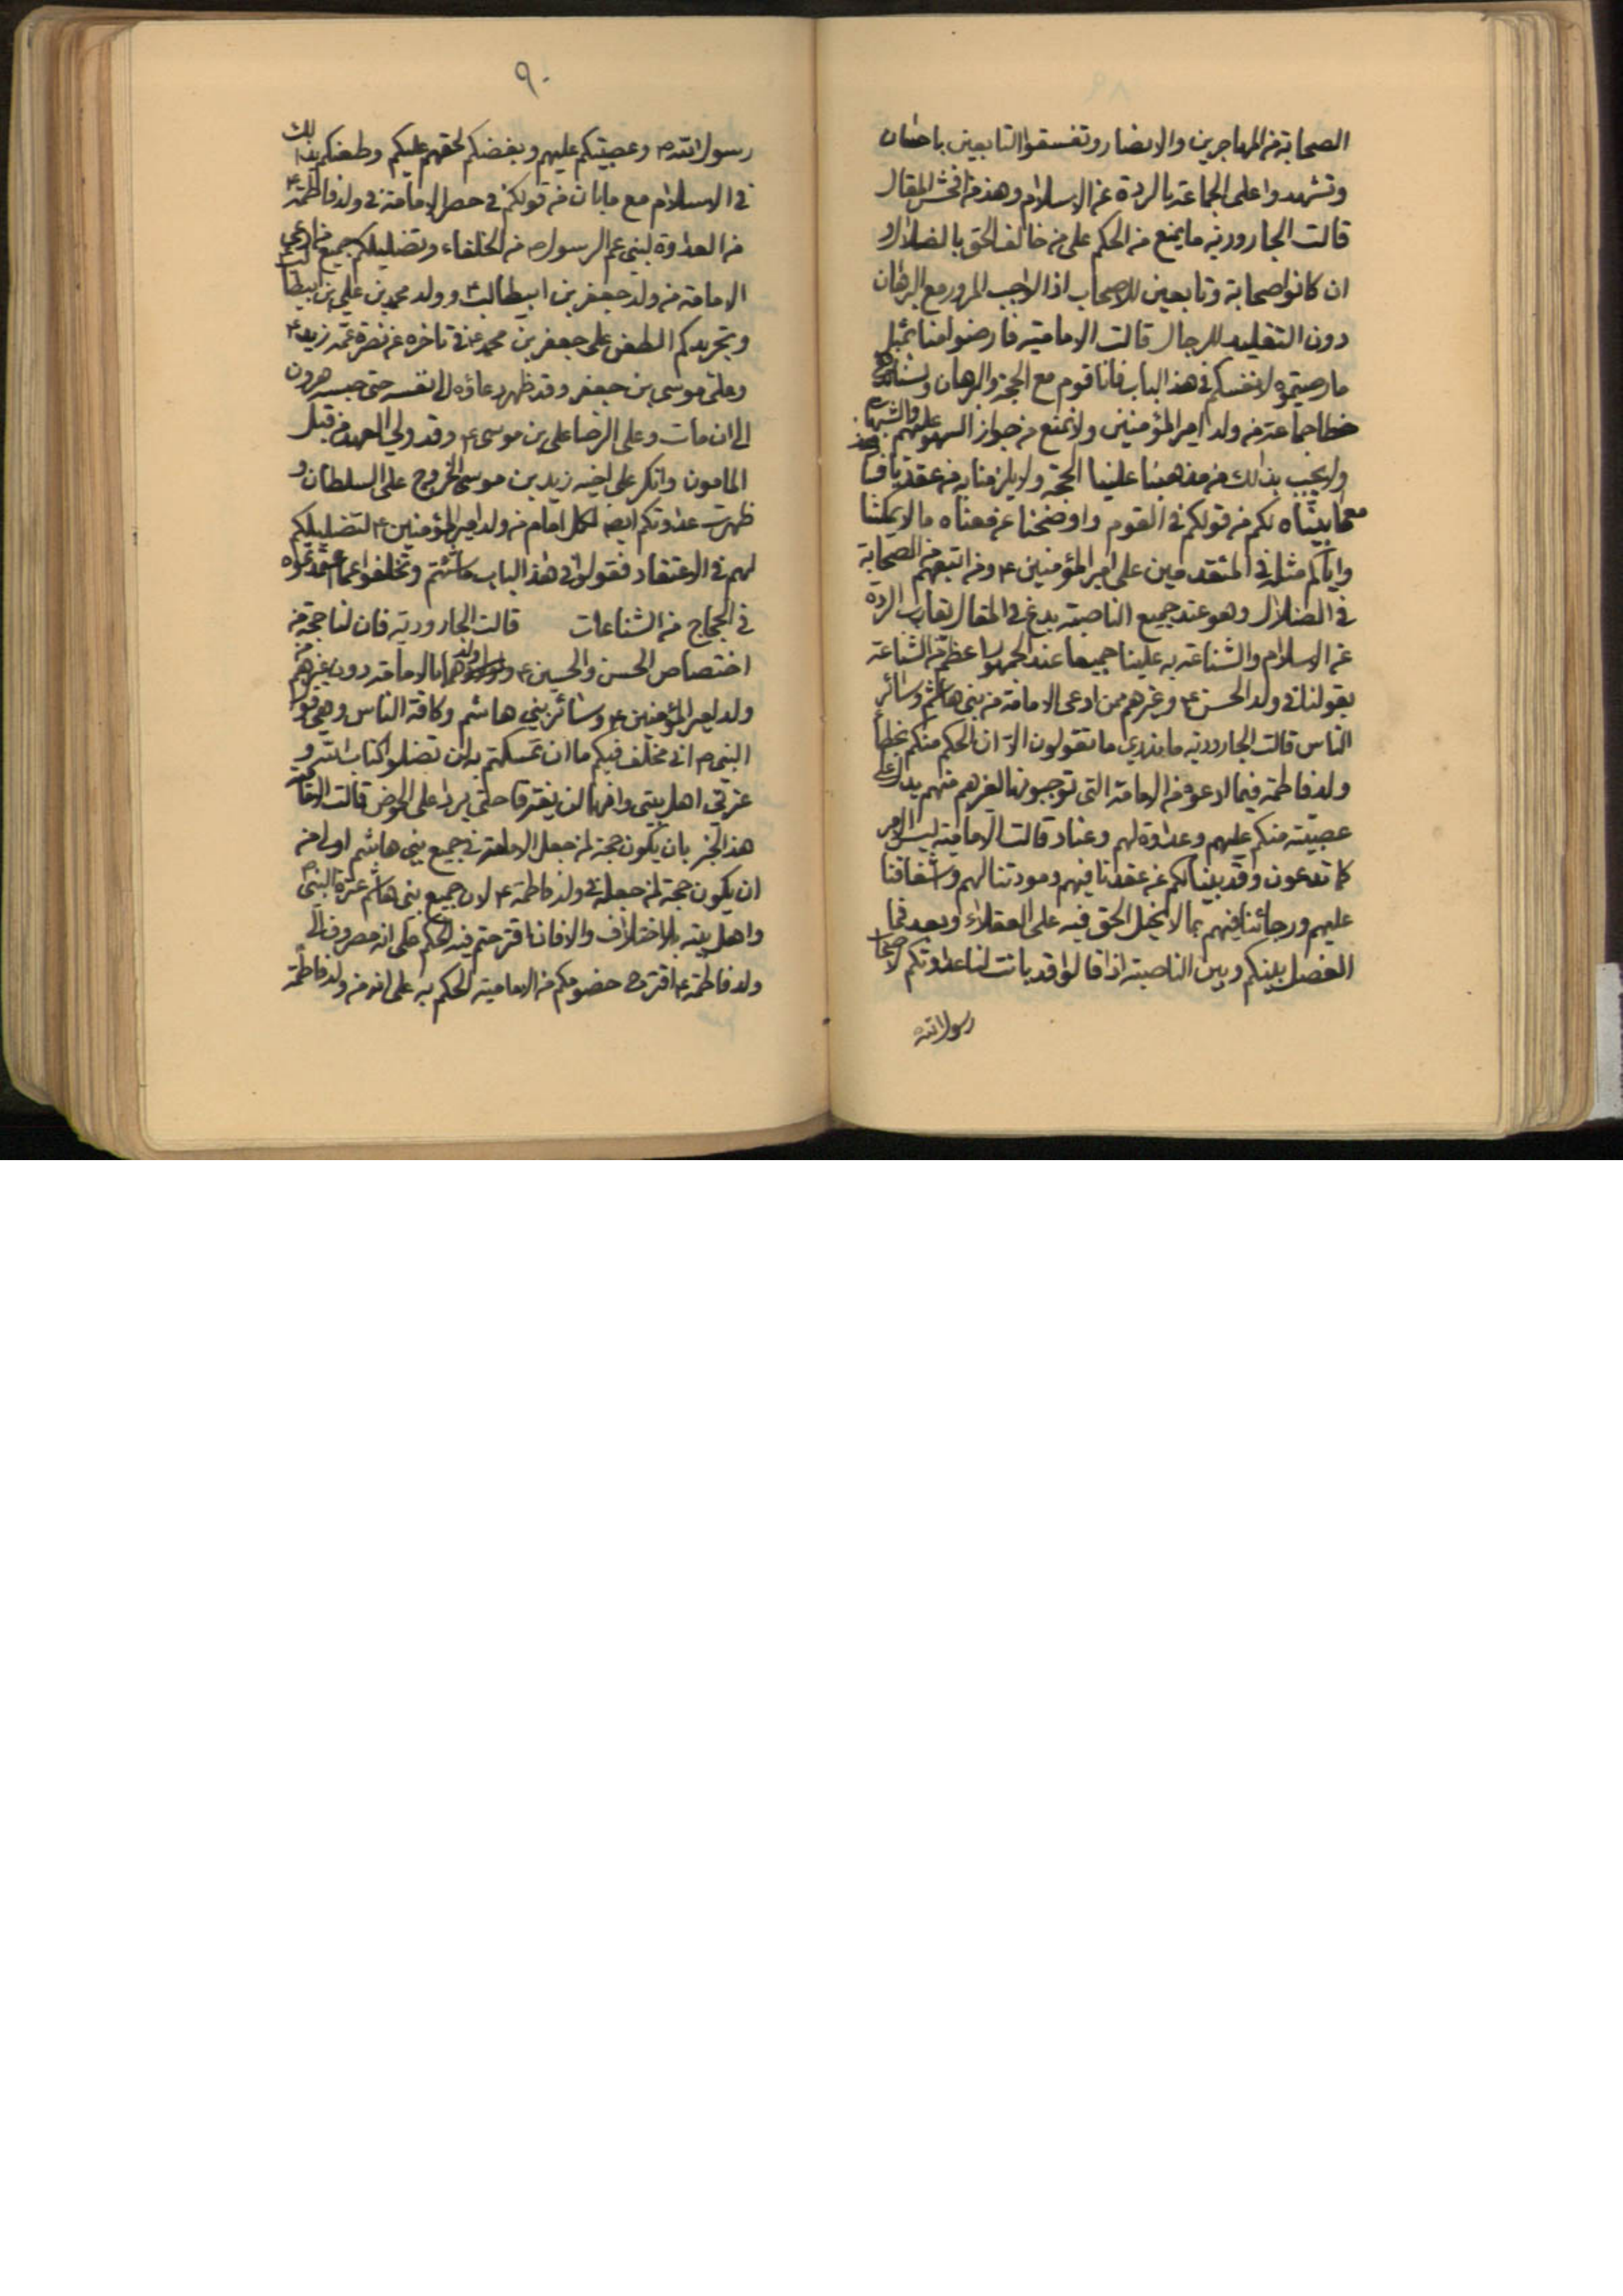 الصحابة من المهاجرين والانصار وتفسقوا التابعين باحسان
وتشهدوا على الجماعة بالردة عن الاسلام وهذا من افحش المقال
قالت الجارودية ما يمنع من الحكم على من خالف الحق بالضلال و
ان كانوا صحابة وتابعين للاصحاب اذ الواجب المرور مع البرهان
دون التقليد للرجال قالت الامامية فارضوا منا بمثل
ما رضيتموه لانفسكم في هذا الباب فانا قوم مع الحجة والبرهان
خطا جماعة من ولد امير المؤمنين ولا نمنع من جواز السهو عليهم والشبهات
ولا يجب بذلك من مذهبنا علينا الحجة ولا يلزمنا به من عقد
بيناه لكم من قولكم في القوم واوضحنا عن معناه ما لا يمكننا
واياكم مثله في المتقدمين على امير المؤمنين ع ومن اتبعهم من الصحابة
في الضلال وهو عند جميع الناصبة بدع في المقال يقارب الردة
عن الاسلام والشناعة به علينا جميعا عند الجمهور اعظم من الشناعة
بقولنا في ولد الحسن ع وغيرهم ممن ادعى الامامة من بني هاشم وسائر
الناس قالت الجارودية ما ندري ما تقولون الا ان الحكم منكم بخطا
ولد فاطمة فيما ادعوه من الامامة التي توجبونها لغيرهم منهم يدل على
عصبية منكم عليهم وعداوة لهم وعناد قالت الامامية ليس الامر
كما تدعون وقد بينا لكم عن عقدنا فيهم ومودتنا لهم وشفاقنا
عليهم ورجائنا فيهم بما لا يخيل الحق فيه على العقلاء وبعد فما
الفصل بينكم وبين الناصبة اذا قالوا قد بانت لنا عداوتكم لاصحاب
رسول الله
٩٠
رسول الله ص وعصبيتكم عليهم وبغضكم لحقهم عليكم وطعنكم بذلك
في الاسلام مع ما بان من قولكم في حصر الامامة في ولد فاطمة ع
من العداوة لبني عم الرسول ص من الخلفاء وتضليلكم جميع من ادعى
الامامة من ولد جعفر بن ابيطالب ع وولد محمد بن علي بن ابيطالب
وتجريدكم الطعن على جعفر بن محمد ع في تاخره عن نصرة عمه زيد ع
وعلى موسى بن جعفر وقد ظهر دعاؤه الى نفسه حتى حبسه هرون
الى ان مات وعلى الرضا علي بن موسى ع وقد ولي العهد من قبل
المامون وانكر على اخيه زيد بن موسى الخروج على السلطان و
ظهرت عداوتكم ايضا لكل امام من ولد امير المؤمنين ع لتضليلكم
لهم في الاعتقاد فقولوا في هذا الباب ما شئتم وتخلفوا عما عقدتموه
في الحجاج من الشناعات قالت الجارودية فان لنا حجة من
اختصاص الحسن والحسين ع و ولدهما بالامامة دون غيرهم من
ولد امير المؤمنين ع وسائر بني هاشم وكافة الناس وهي قول
النبي ص اني مخلف فيكم ما ان تمسكتم به لن تضلوا كتاب الله و
عترتي اهل بيتي وانهما لن يفترقا حتى يردا على الحوض قالت الامامية
هذا الخبر بان يكون حجة لمن جعل الامامة في جميع بني هاشم اولى من
ان يكون حجة لمن جعلها في ولد فاطمة ع لان جميع بني هاشم عترة النبي ص
واهل بيته بلا اختلاف والا فان اقترحتم فيه الحكم على انه مصروف الى
ولد فاطمة ع اقترح خصومكم من الامامية الحكم به على انه من ولد فاطمة